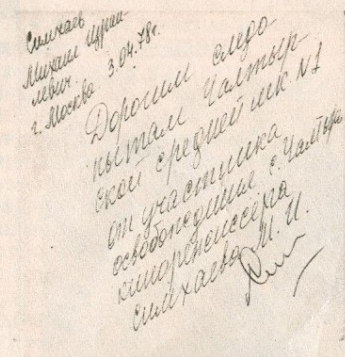 Симхаев
Михаил Израи-
левич.
г. Москва 3.04.78г.
Дорогим следо-
пытам Чалтыр-
ской средней шк. N1
от участника
освобождения с. Чалтырь
кинорежиссёра
Симхаева М. И.